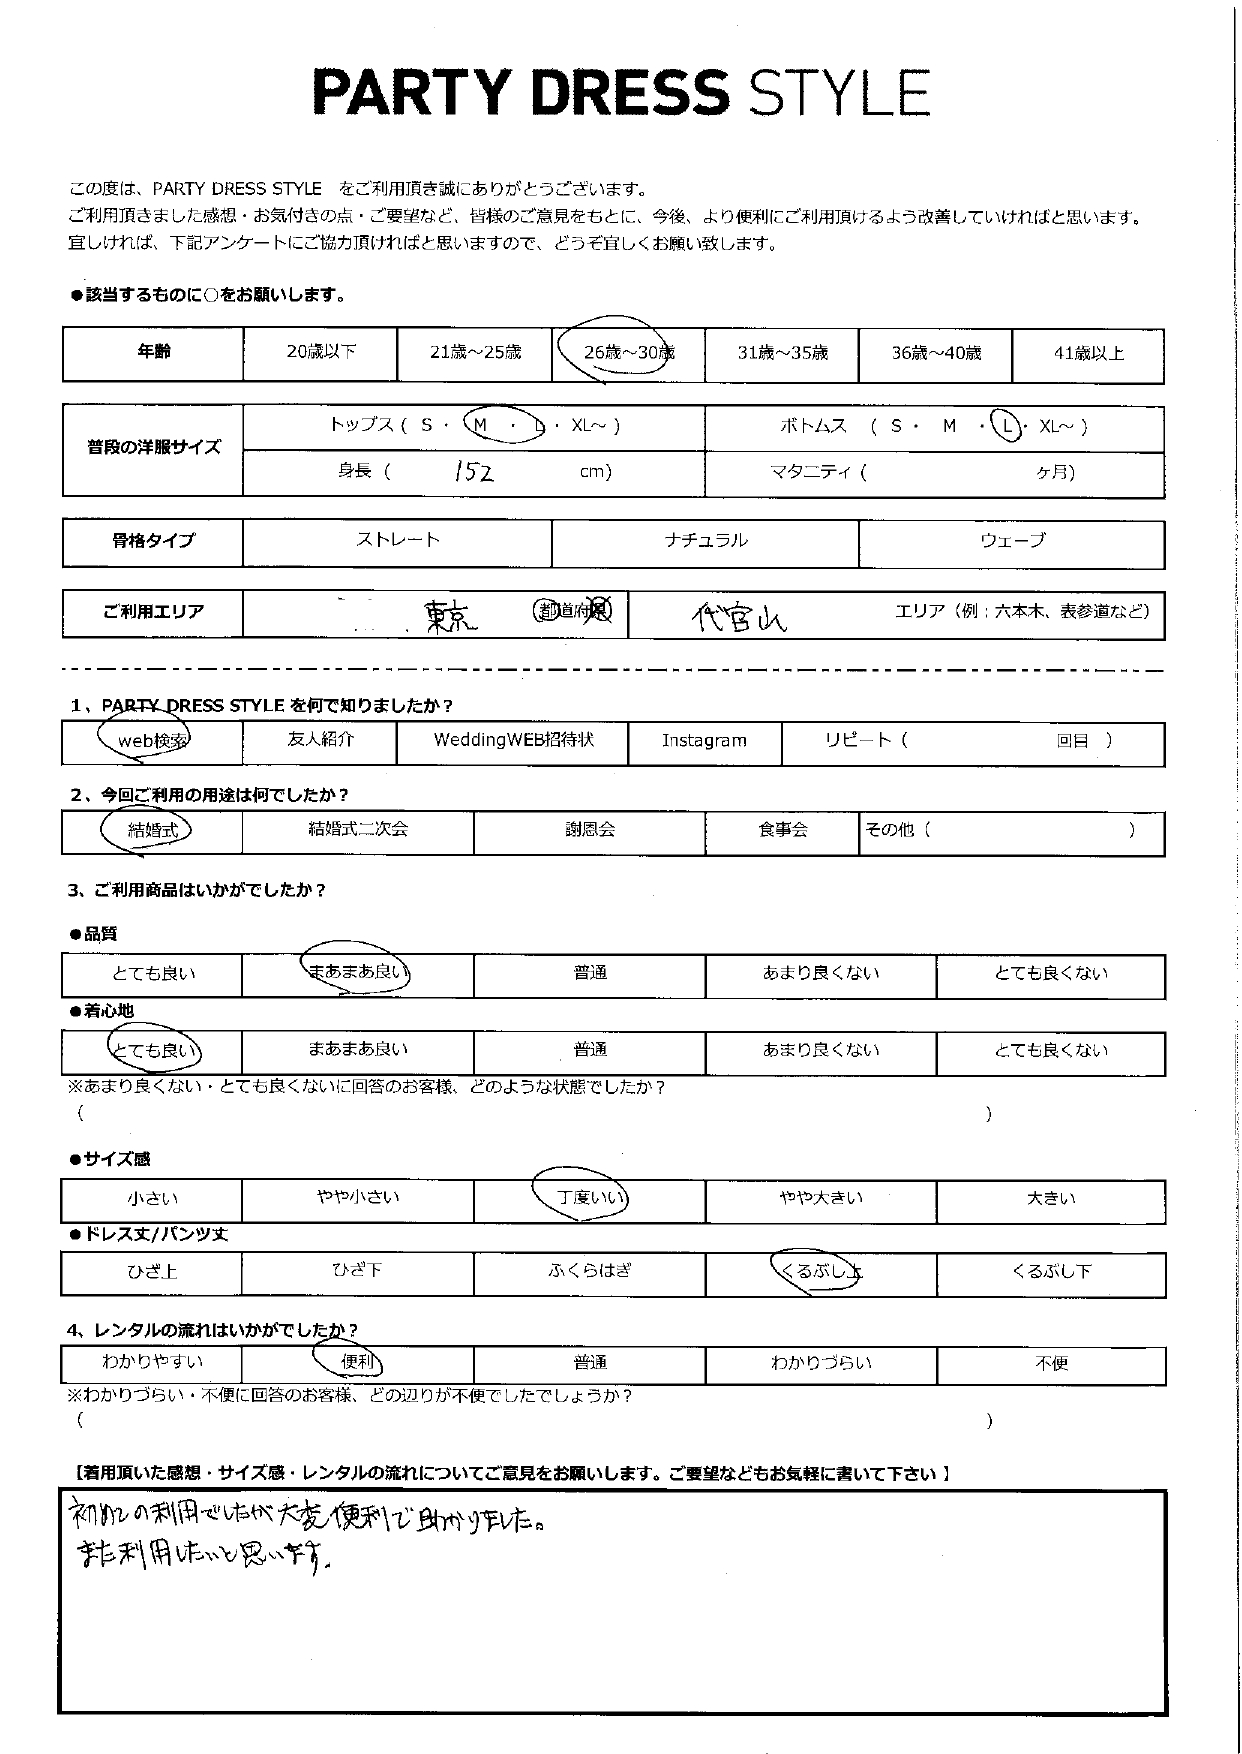 PARTY DRESS STYLE
この度は、PARTY DRESS STYLE をご利用頂き誠にありがとうございます。
ご利用頂きました感想・お気付きの点・ご要望など、皆様のご意見をもとに、今後、より便利にご利用頂けるよう改善していければと思います。
宜しければ、下記アンケートにご協力頂ければと思いますので、どうぞ宜しくお願い致します。
●該当するものに○をお願いします。
年齢 20歳以下 21歳～25歳 26歳～30歳 31歳～35歳 36歳～40歳 41歳以上
普段の洋服サイズ トップス ( S ・ M ・ L ・ XL～ ) ボトムス ( S ・ M ・ L ・ XL～ )
身長 ( 152 cm) マタニティ ( ヶ月)
骨格タイプ ストレート ナチュラル ウェーブ
ご利用エリア 東京 都道府県 代官山 エリア（例；六本木、表参道など）
1、PARTY DRESS STYLE を何で知りましたか？
web検索 友人紹介 WeddingWEB招待状 Instagram リピート ( 回目 )
2、今回ご利用の用途は何でしたか？
結婚式 結婚式二次会 謝恩会 食事会 その他 ( )
3、ご利用商品はいかがでしたか？
●品質
とても良い まあまあ良い 普通 あまり良くない とても良くない
●着心地
とても良い まあまあ良い 普通 あまり良くない とても良くない
※あまり良くない・とても良くないに回答のお客様、どのような状態でしたか？
( )
●サイズ感
小さい やや小さい 丁度いい やや大きい 大きい
●ドレス丈/パンツ丈
ひざ上 ひざ下 ふくらはぎ くるぶし上 くるぶし下
4、レンタルの流れはいかがでしたか？
わかりやすい 便利 普通 わかりづらい 不便
※わかりづらい・不便に回答のお客様、どの辺りが不便でしたでしょうか？
( )
【着用頂いた感想・サイズ感・レンタルの流れについてご意見をお願いします。ご要望などもお気軽に書いて下さい】
初めての利用でしたが大変便利で助かりました。
また利用したいと思います.